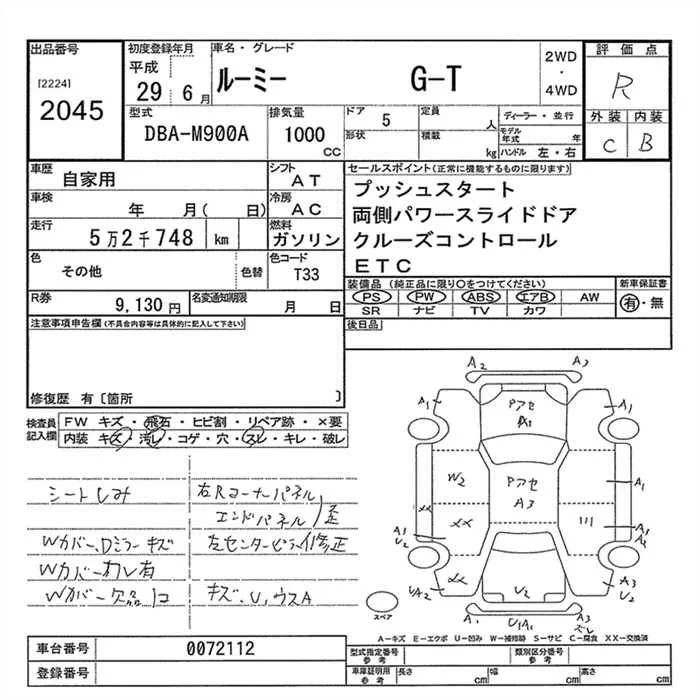 出品番号
[2224]
2045
初度登録年月
平成
29 6 月
車名・グレード
ルーミー G-T
2WD
・
4WD
評価点
R
外装 内装
C B
型式
DBA-M900A
排気量
1000
CC
ドア 5
形状
定員 人
積載 kg
ディーラー・並行
モデル年式 年
ハンドル 左・右
車歴
自家用
シフト
AT
車検
年 月( 日)
冷房
AC
走行
5万2千748 km
燃料
ガソリン
色
その他
色替
色コード
T33
R券
9,130 円
名変通知期限
月 日
セールスポイント(正常に機能するものに限ります)
プッシュスタート
両側パワースライドドア
クルーズコントロール
ETC
装備品 (純正品に限り○をつけてください)
PS PW ABS エアB AW
SR ナビ TV カワ
新車保証書
有・無
後日品
注意事項申告欄(不具合内容等は具体的に記入して下さい)
修復歴 有〔箇所 〕
検査員
記入欄
FW キズ・飛石・ヒビ割・リペア跡・×要
内装 キズ・汚レ・コゲ・穴・スレ・キレ・破レ
シートしみ
Wカバー、Dミラーキズ
Wカバーワレ有
Wカバー欠品1コ
右Rコーナーパネル
エンドパネル 歪
左センターピラー修正
キズ、U、ウスA
A2 A3
A1 A1
Pアセ
A1
W2
Pアセ
A3
XX
XX
A1
U2
A1
XX
UA2
U2
A3
U2
A3 U1A1 A3
ズレ
スペア
A－キズ E－エクボ U－凹み W－補修跡 S－サビ C－腐食 XX－交換済
車台番号
0072112
登録番号
型式指定番号
参考
類別区分番号
参考
車庫証明用
参考
長さ cm
幅 cm
高さ cm